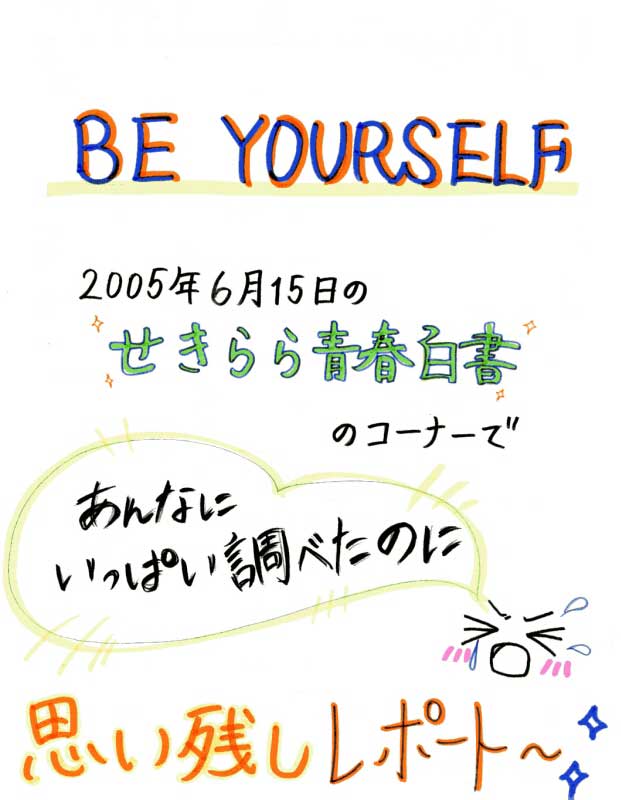 BE YOURSELF
2005年6月15日の
せきらら青春白書
のコーナーで
あんなに
いっぱい調べたのに
思い残しレポート〜